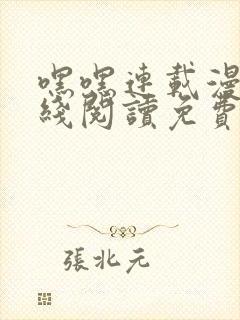 嘿嘿連載漫
綫閱讀免費
張北元